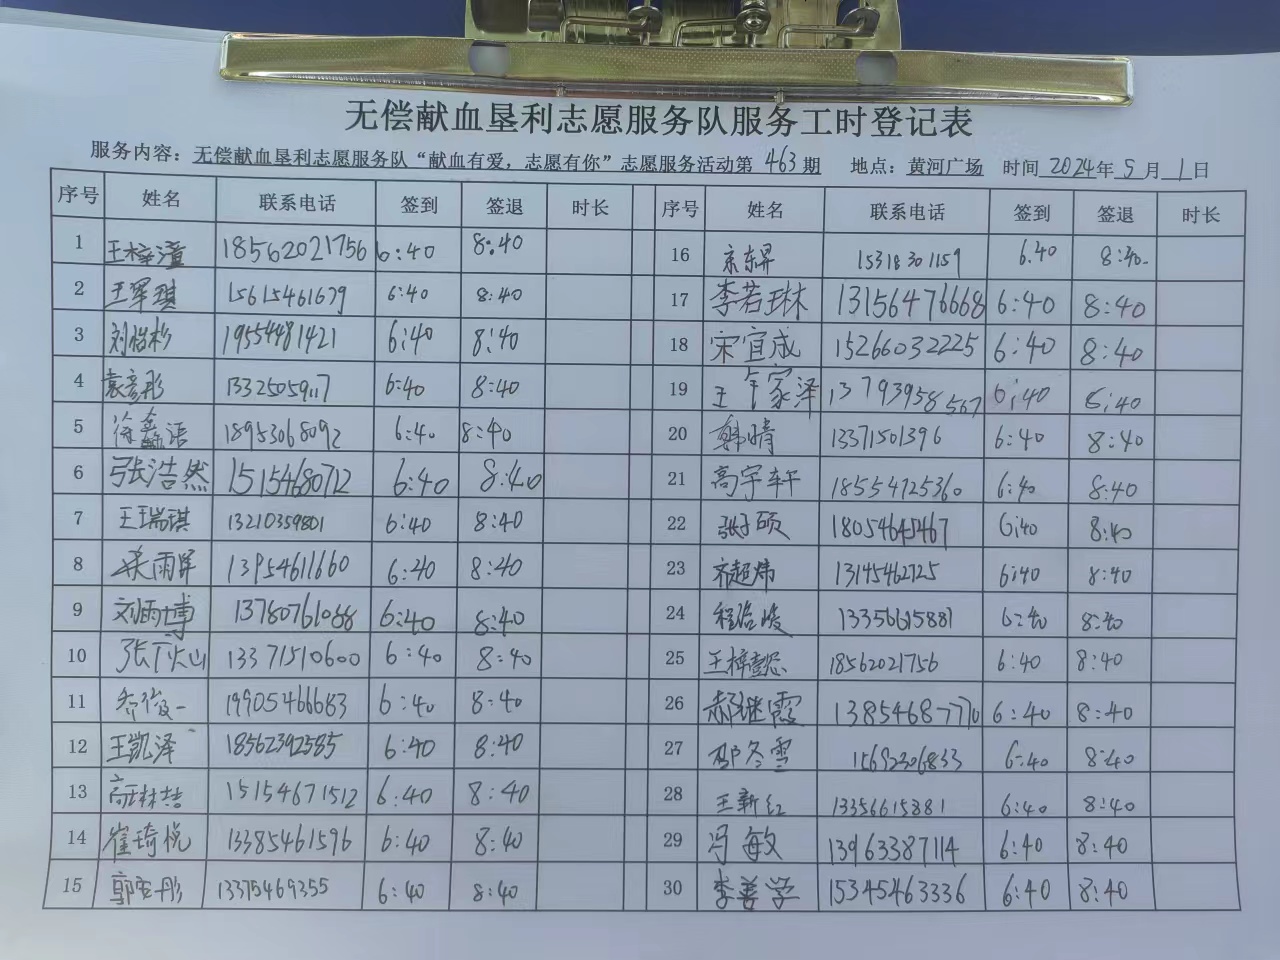 无偿献血垦利志愿服务队服务工时登记表
服务内容：无偿献血垦利志愿服务队“献血有爱，志愿有你”志愿服务活动第463期 地点：黄河广场 时间2024年5月1日
序号 姓名 联系电话 签到 签退 时长 序号 姓名 联系电话 签到 签退 时长
1 王梓潼 18562021756 6:40 8:40 16 东昇 15318301159 6.40 8:40
2 王军琪 15615461679 6:40 8:40 17 李若琳 13156476668 6:40 8:40
3 刘怡杉 19554481421 6:40 8:40 18 宋宜成 15266032225 6:40 8:40
4 袁彦彤 13325059117 6:40 8:40 19 王家泽 13793958567 6:40 6:40
5 徐鑫洁 18953068092 6:40 8:40 20 韩晴 13371501396 6:40 8:40
6 张浩然 15154680712 6:40 8:40 21 高宇轩 18554725360 6:40 8:40
7 王瑞琪 13210359801 6:40 8:40 22 张子硕 18054645467 6:40 8:40
8 雨 13954611660 6:40 8:40 23 齐超炜 13145462725 6:40 8:40
9 刘雨博 13780761088 6:40 8:40 24 程 13356615881 6:40 8:40
10 张 13371510600 6:40 8:40 25 王梓懿 18562021756 6:40 8:40
11 乔俊一 19905466683 6:40 8:40 26 郝继霞 13854687770 6:40 8:40
12 王凯泽 18562392585 6:40 8:40 27 邵冬雪 15682306833 6:40 8:40
13 高林喆 15154671512 6:40 8:40 28 王新红 13356615381 6:40 8:40
14 崔琦悦 13385461596 6:40 8:40 29 冯敏 13963387114 6:40 8:40
15 郭雪彤 13375469355 6:40 8:40 30 李善学 15345463336 6:40 8:40